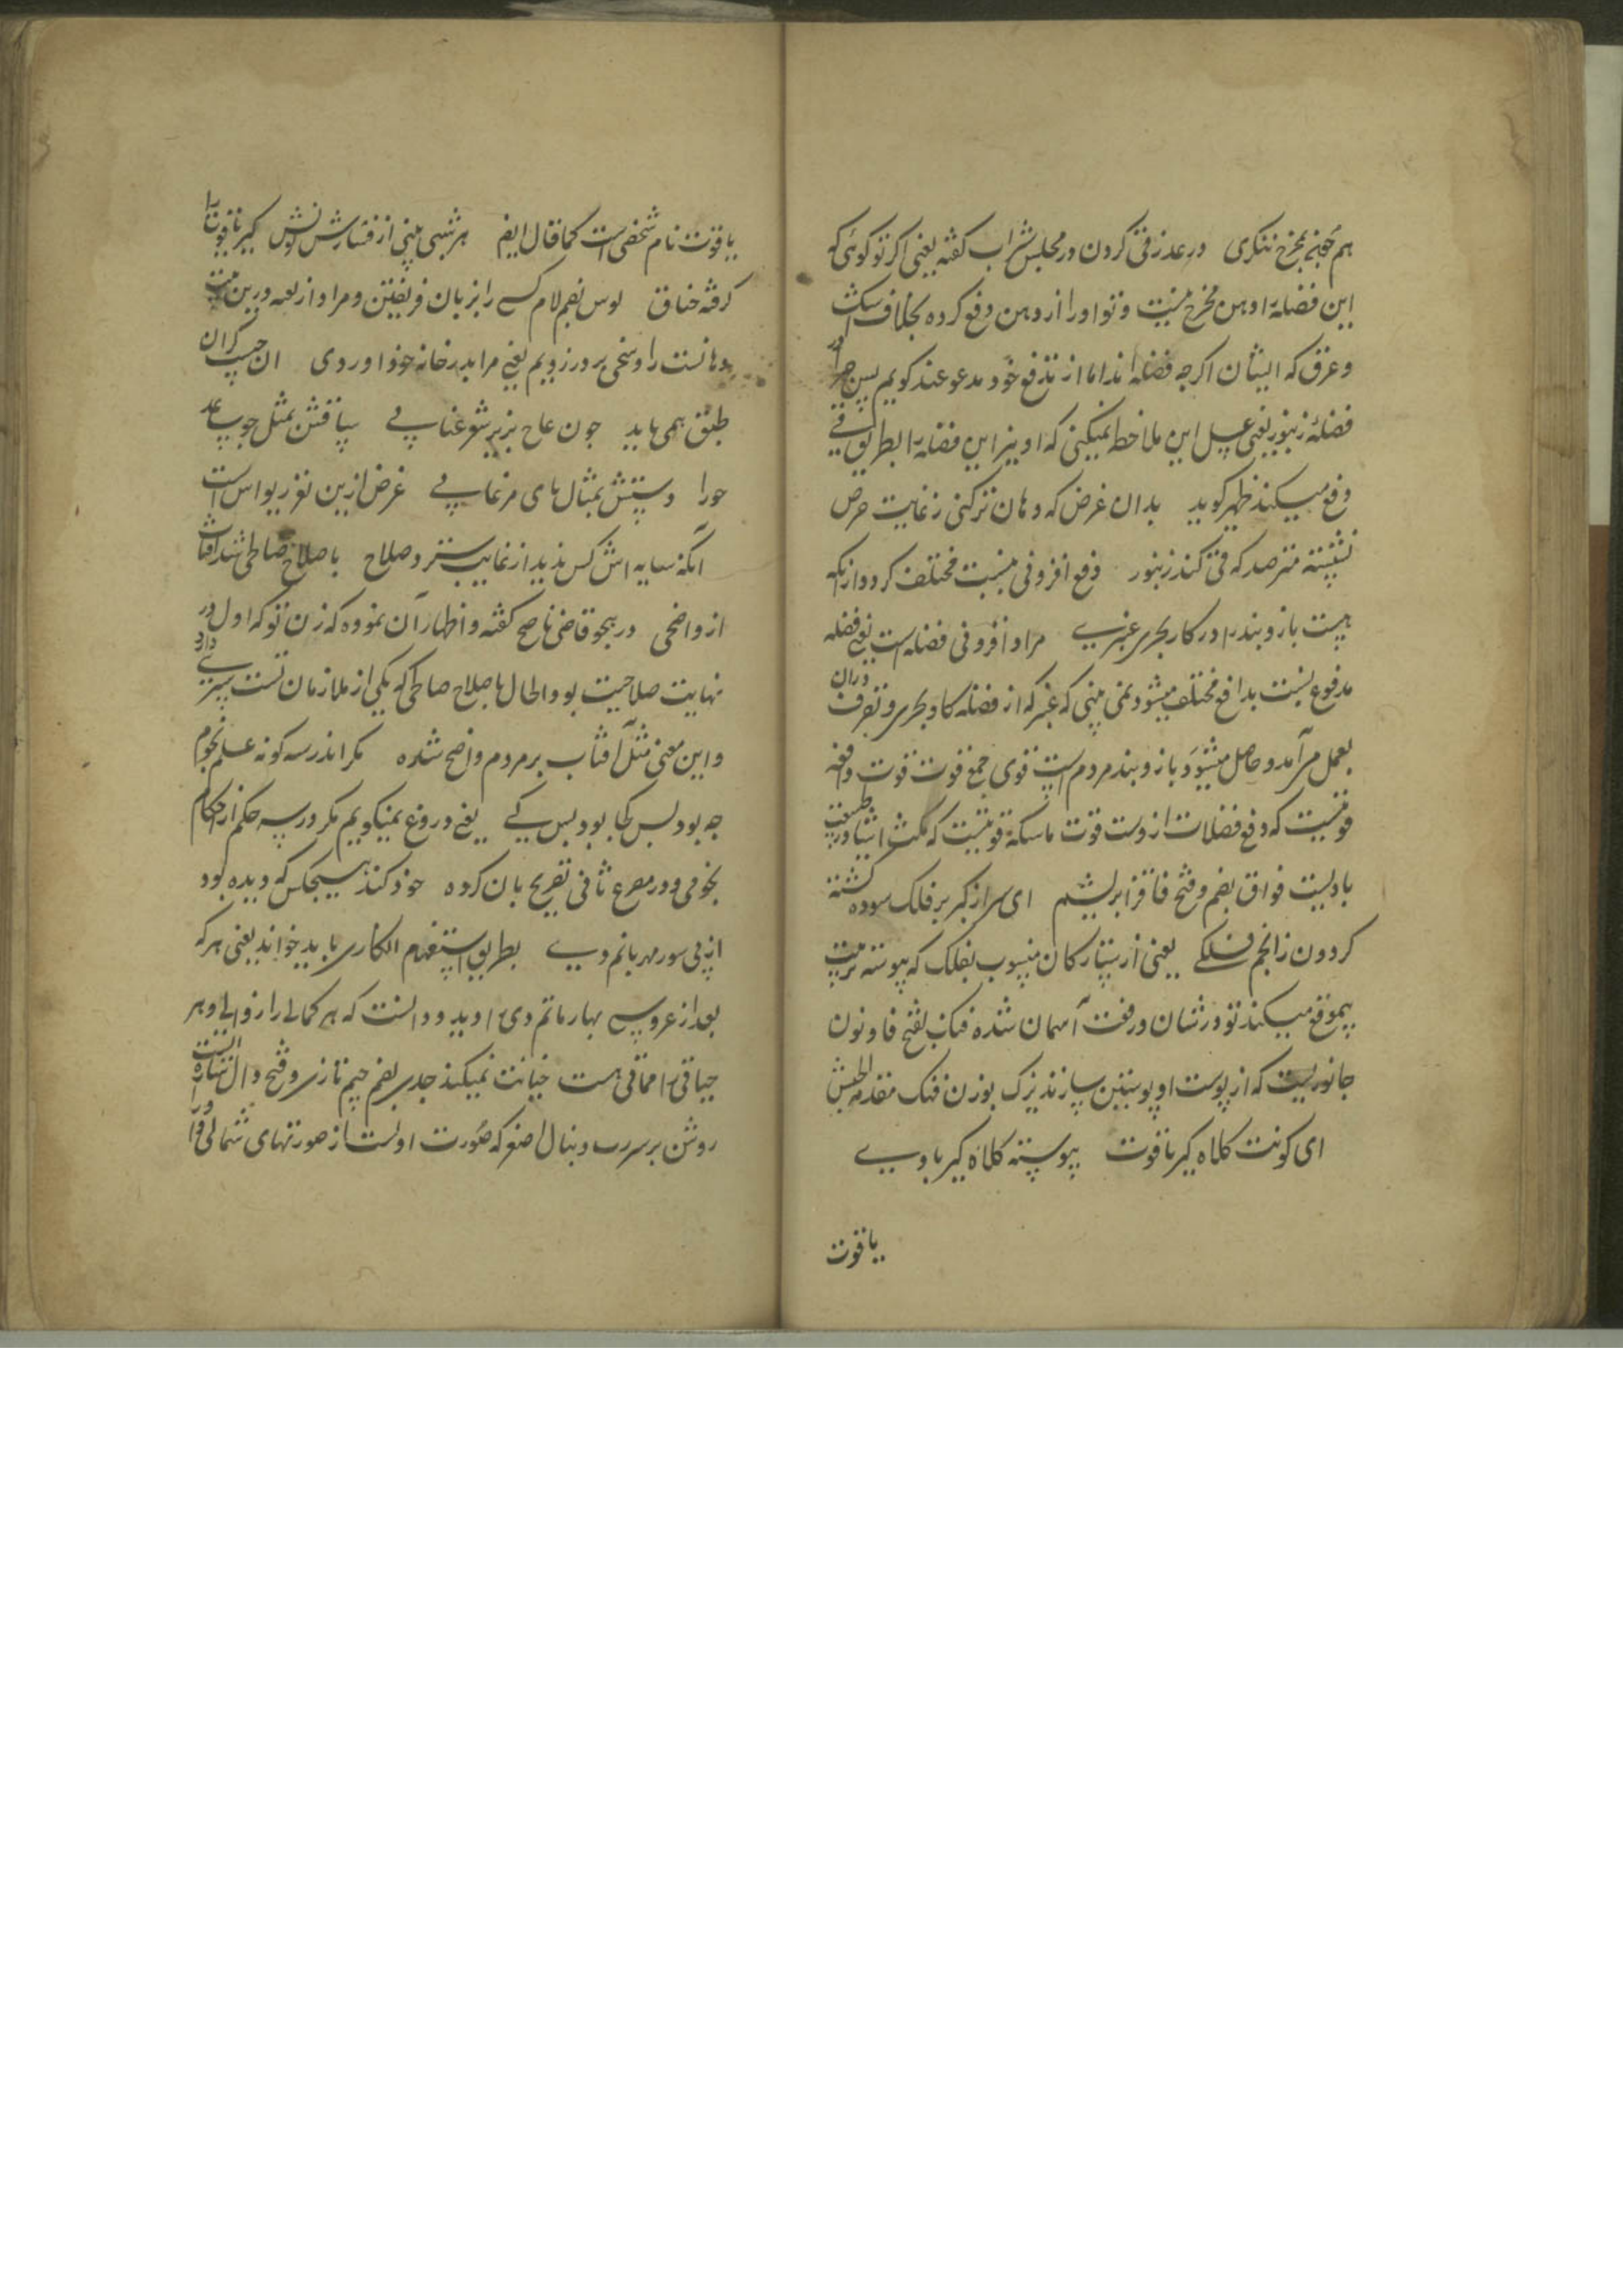 هم چنین بمخرج ننگری در عذر قی کردن در مجلس شراب گفته یعنی اگر تو گوئی که
این فضله را دهن مخرج نیست و تو او را از دهن دفع کرده بخلاف اشک
و عرق که ایشان اگرچه فضله اند اما از مدفع خود مدفوعند گویم پس چرا در
فضله زنبور یعنی عسل این ملاحظه نمیکنی که او نیز این فضله را بطریق قی
دفع میکند ظهیر گوید بدان غرض که دهان تر کنی ز غایت حرص
نشسته مترصد که قی کند زنبور دفع افزونی بنسبت مختلف گردد از آنکه
هست بازو بند را در کار بحری عنبری مراد از فزونی فضله است یعنی فضله
مدفوع بنسبت بدافع مختلف میشود نمی بینی که عنبر که از فضله کاو بحری و تصرف دران
بعمل می آمد و حاصل میشود بازو بند مردم است قوی جمع قوت قوت دافعه
قوتیست که دفع فضلات از دست قوت ماسکه قوتیست که مکث اشیا در طبیعت
بادیست فواق بضم و فتح فا قز ابریشم ای سر از کبر بر فلک سوده گشته
گردون ز انجم فلکی یعنی از ستارگان منسوب بفلک که پیوسته تربیت
بیموقع میکند تو در شان و رفعت آسمان شده فنک بفتح فا و نون
جانوریست که از پوست او پوستین سازند یزک بوزن فنک مقدمة الجیش
ای کونت کلاه کیر یاقوت پیوسته کلاه کیر بادی
یاقوت
یاقوت نام شخصی است کما قال ایضا هر شبی بینی از فشارش کونش کیر یاقوت را
گرفته خناق لوس بضم لام کسی را بزبان فریفتن و مراد از لعبه درین بیت
دهانست را وسخی بر در زدیم یعنی مرا بدر خانه خود آوردی
طبق همی باید چون عاج بزیر شعر عنابی ساقش بمثل چو ساعد
حورا دستش بمثال پای مرغابی غرض ازین
آنکه سایه اش کس ندید از غایت ستر و صلاح با صلاح صالحی شد آفتاب
از واضحی در هجو قاضی ناصح گفته و اظهار آن نموده که زن تو که اول در
نهایت صلاحیت بود الحال با صلاح صالحی که یکی از ملازمان تست سری دارد
و این معنی مثل آفتاب بر مردم واضح شده مگر اندر سه گونه علم نجوم
چه بود پس کجا بود پس کی یعنی دروغ نمیگویم مگر در سه حکم از احکام
نجومی و در مصرع ثانی تصریح بان کرده خود کند هیچکس که دیده بود
از پی سور مهر ماتم دی بطریق استفهام انکاری باید خواند یعنی هر که
بعد از عروسی بهار ماتم دی را دید و دانست که هر کمالی را زوالی و هر
حیاتی را مماتی هست خیانت نمیکند جدی بضم جیم تازی و فتح دال ستاره ایست
روشن بر سر دب دنبال اصغر که صورت اولست از صورتهای شمالی و آنرا